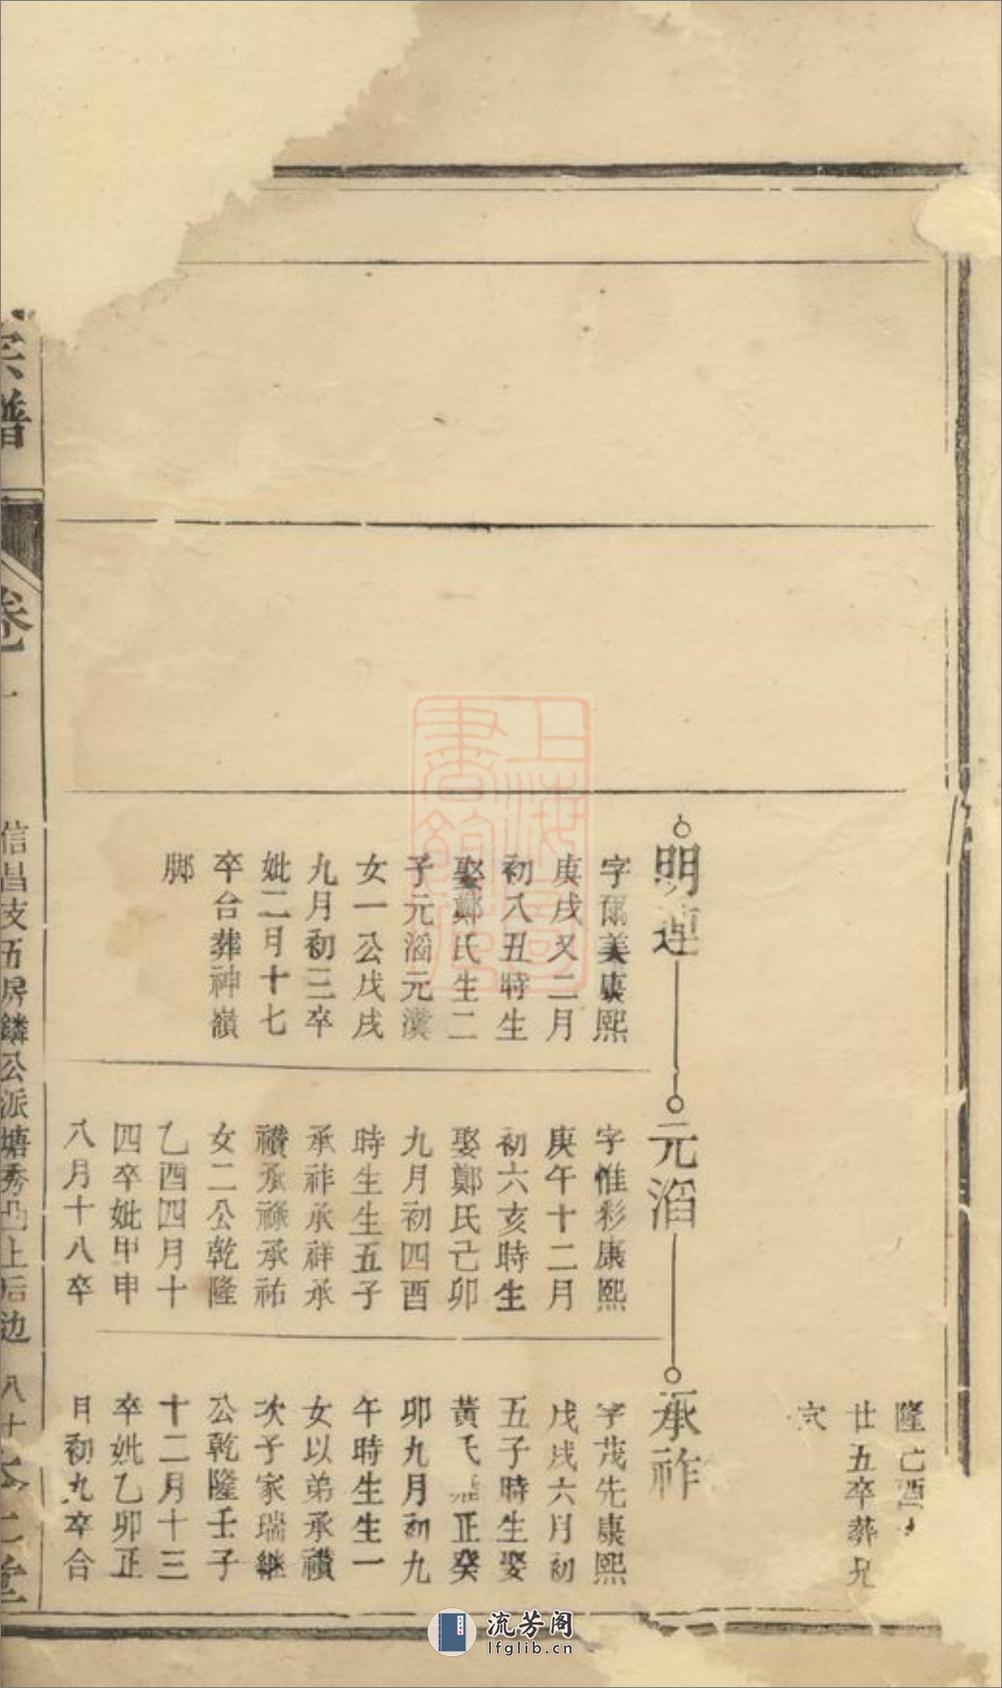 隆己酉
廿五卒葬兄
穴
明連
字爾美康熙
庚戌又二月
初八丑時生
娶鄭氏生二
子元滔元瀵
女一公戊戌
九月初三卒
妣二月十七
卒合葬神嶺
脚
元滔
字惟彩康熙
庚午十二月
初六亥時生
娶鄭氏己卯
九月初四酉
時生生五子
承祚承祥承
禶承祿承祐
女二公乾隆
乙酉四月十
四卒妣甲申
八月十八卒
承祚
字茂先康熙
戊戌六月初
五子時生娶
黃氏正癸
卯九月初九
午時生生一
女以弟承禶
次子家瑞継
公乾隆壬子
十二月十三
卒妣乙卯正
月初九卒合
宗譜
卷一
信昌支五房鏻公派塘秀凸上后边
八十
堂
上海圖書館藏
流芳阁
lfglib.cn